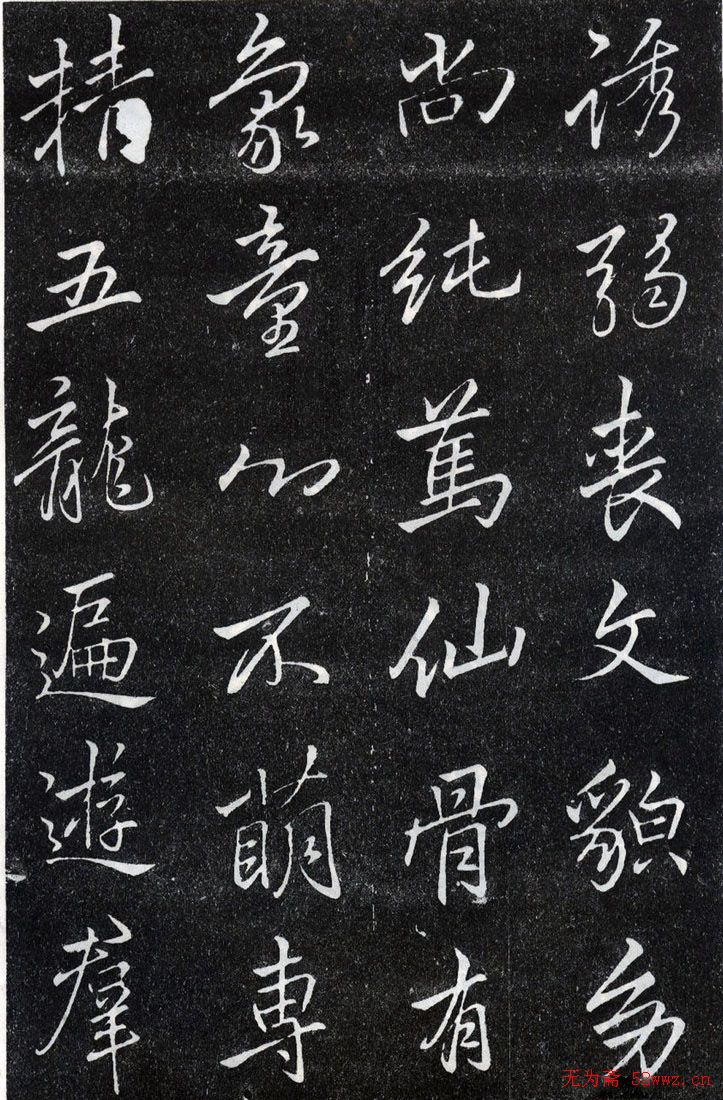 誘弱喪文䫉幼
尚純篤仙骨有
象童心不萌專
精五龍遍遊羣
无为斋 58wwz.cn